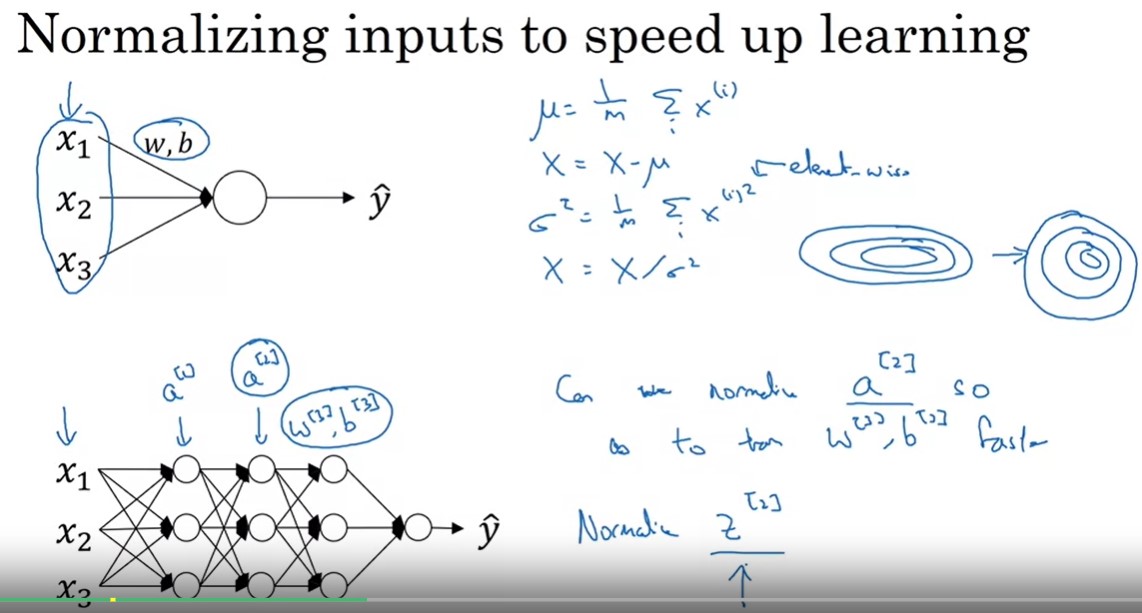 Normalizing inputs to speed up learning
x₁
w, b
x₂
ŷ
x₃
μ = 1/m Σᵢ x⁽ⁱ⁾
X = X - μ
σ² = 1/m Σᵢ x⁽ⁱ⁾²
element-wise
X = X/σ²
a^[1]
a^[2]
w^[3], b^[3]
x₁
x₂
ŷ
x₃
Can we normalize a^[2] so
as to train w^[3], b^[3] faster
Normalize z^[2]